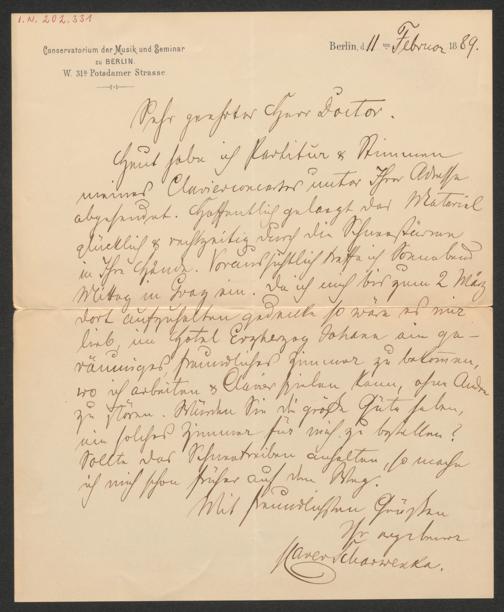 I.N. 202.331
Conservatorium der Musik und Seminar
zu BERLIN.
W. 31a Potsdamer Strasse
Berlin, d. 11 ten Februar 1889.
Sehr geehrter Herr Doctor.
Heut habe ich Partitur & Stimmen
meines Clavierconcertes unter Ihrer Adresse
abgesendet. Hoffentlich gelangt das Material
glücklich & rechtzeitig durch die Schneestürme
in Ihre Hände. Voraussichtlich treffe ich Sonnabend
Mittag in Graz ein. Da ich mich bis zum 2 März
dort aufzuhalten gedenke so wär es mir
lieb, im Hotel Erzherzog Johann ein ge-
räumiges, freundliches Zimmer zu bekommen,
wo ich arbeiten & Clavier spielen kann, ohne Andre
zu stören. Würden Sie die große Güte haben,
ein solches Zimmer für mich zu bestellen?
Sollte das Schneetreiben anhalten, so mache
ich mich schon früher auf den Weg.
Mit freundlichsten Grüßen
Ihr ergebener
Xaver Scharwenka.